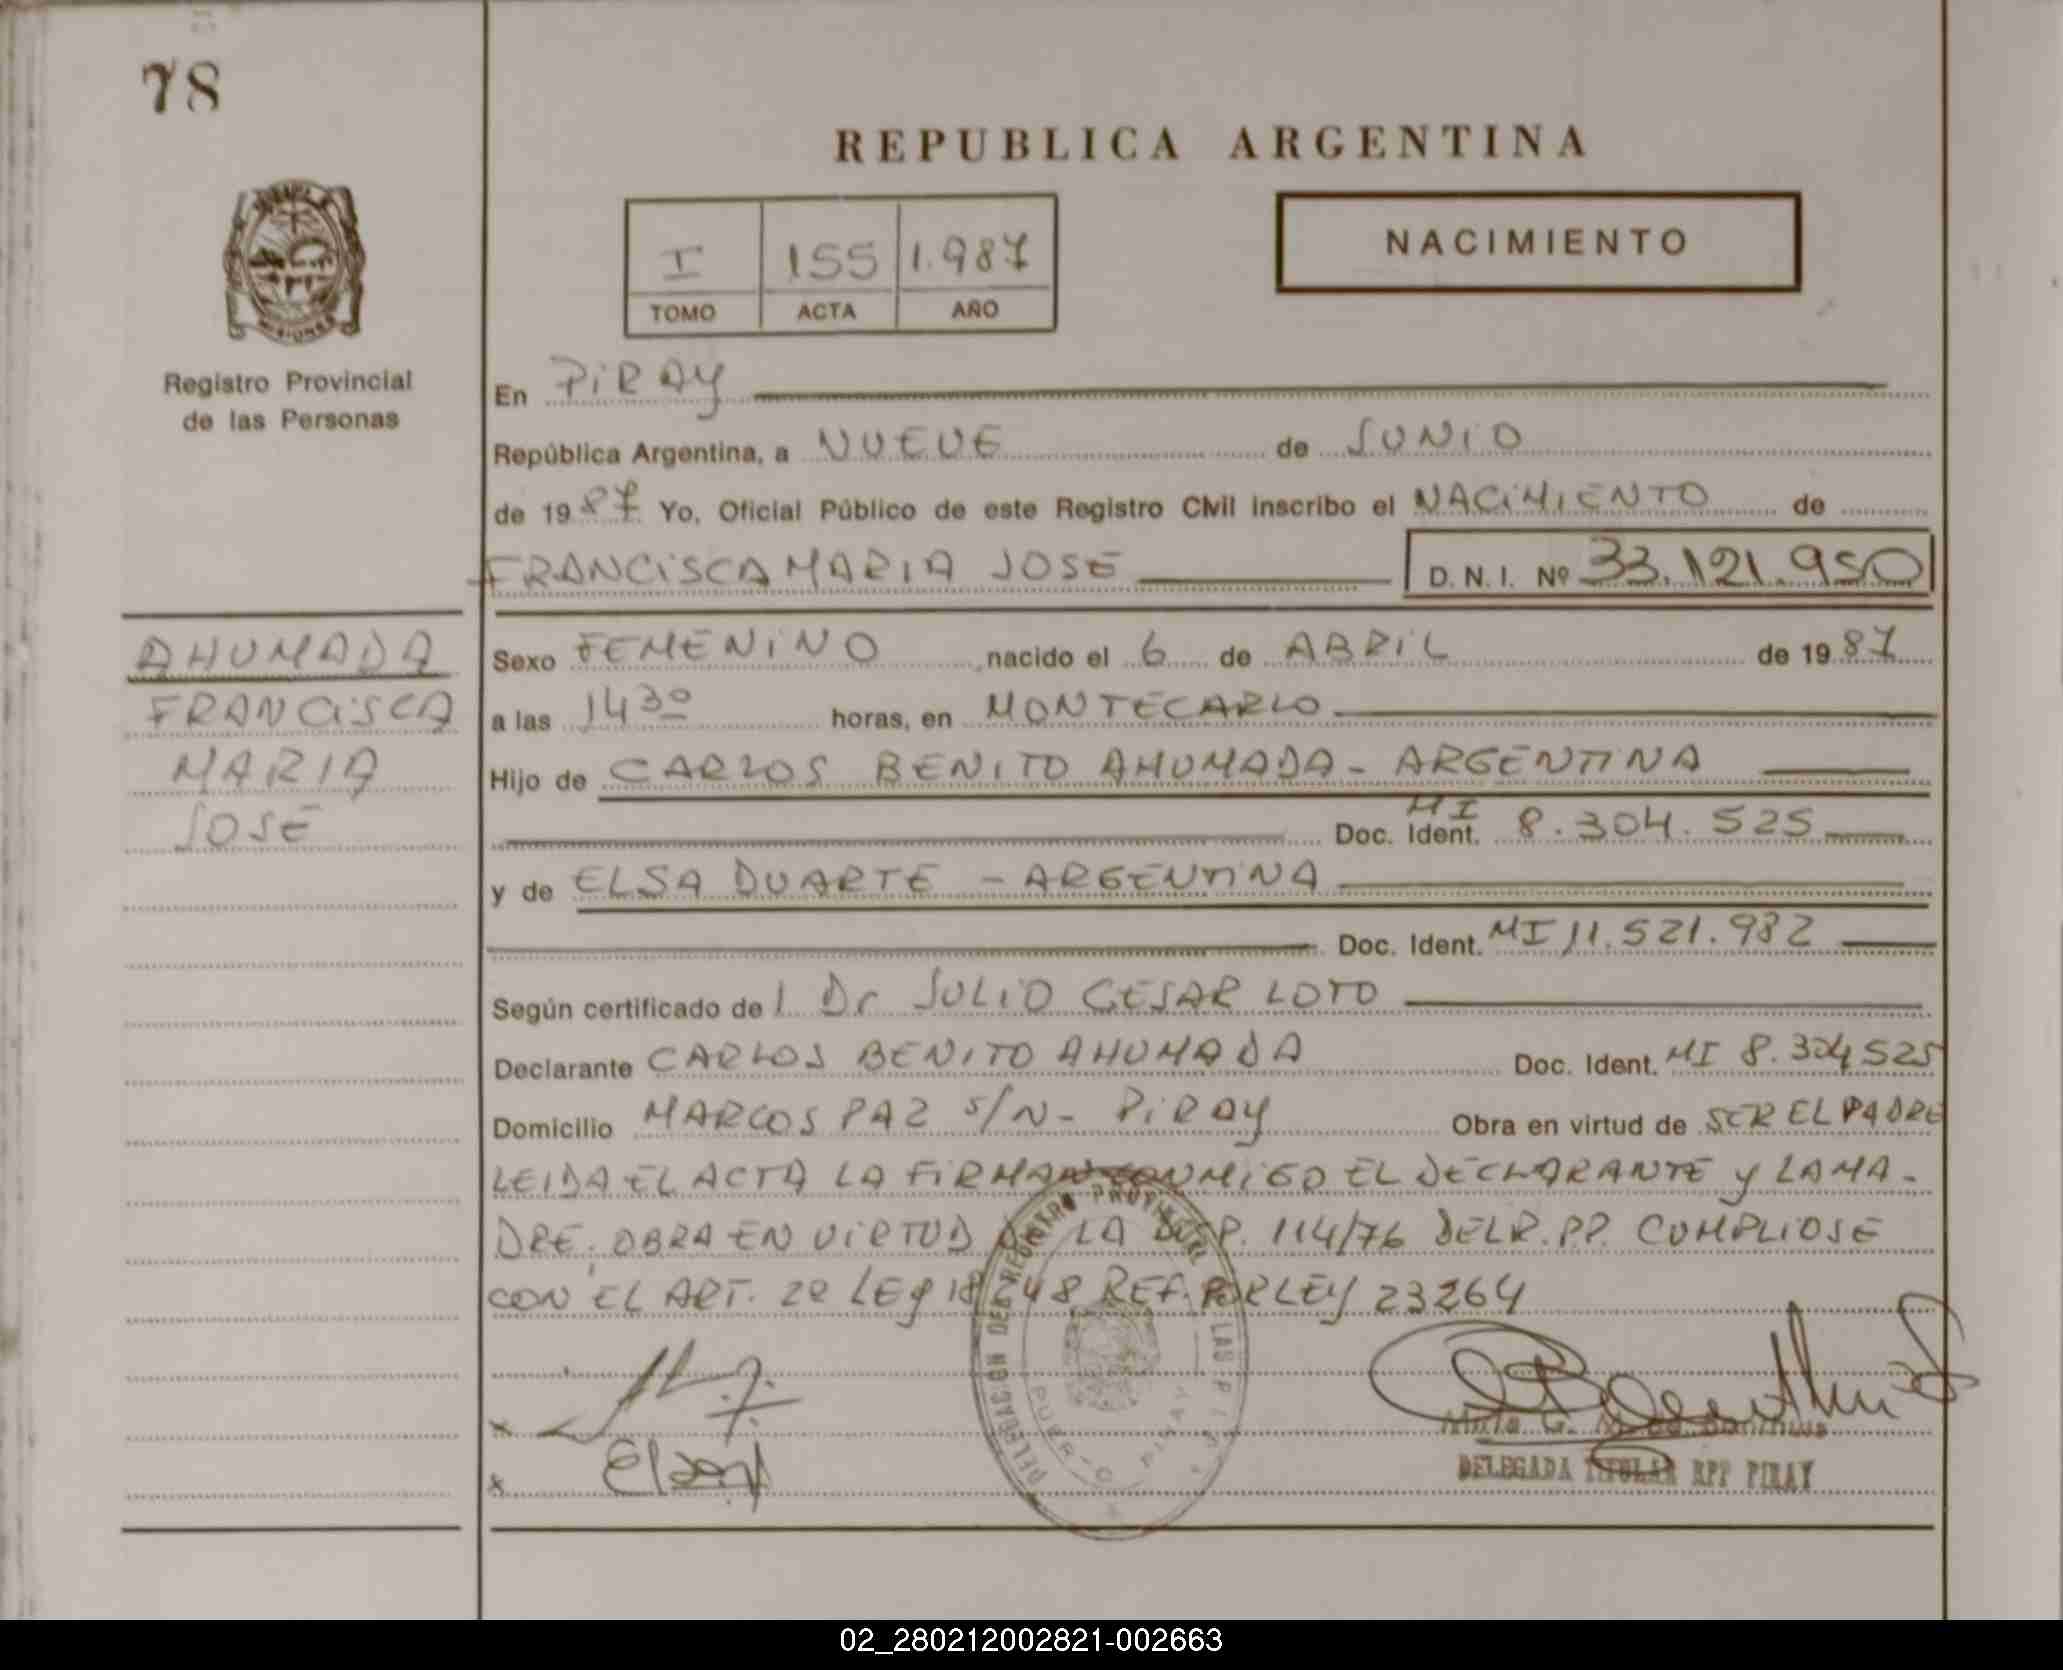 78
REPUBLICA ARGENTINA
NACIMIENTO
I 155 1.987
TOMO ACTA AÑO
MISIONES
Registro Provincial
de las Personas
En PIRAY
República Argentina, a NUEVE de JUNIO
de 1987 Yo, Oficial Público de este Registro Civil inscribo el NACIMIENTO de
FRANCISCA MARIA JOSE D.N.I. Nº 33.121.950
AHUMADA
FRANCISCA
MARIA
JOSE
Sexo FEMENINO nacido el 6 de ABRIL de 1987
a las 14 30 horas, en MONTECARLO
Hijo de CARLOS BENITO AHUMADA - ARGENTINA
Doc. Ident. MI 8.304.525
y de ELSA DUARTE - ARGENTINA
Doc. Ident. MI 11.521.982
Según certificado de l Dr JULIO CESAR LOTO
Declarante CARLOS BENITO AHUMADA Doc. Ident. MI 8.304525
Domicilio MARCOS PAZ S/N - PIRAY Obra en virtud de SER EL PADRE
LEIDA EL ACTA LA FIRMAN CONMIGO EL DECLARANTE Y LA MA-
DRE. OBRA EN VIRTUD DE LA DISP. 114/76 DEL R.PP. CUMPLIOSE
CON EL ART. 2º LEY 18248 REF. POR LEY 23264
DELEGACION DEL REGISTRO PROVINCIAL DE LAS
PUERTO PIRAY
DELEGADA TITULAR RPP PIRAY
02_280212002821-002663